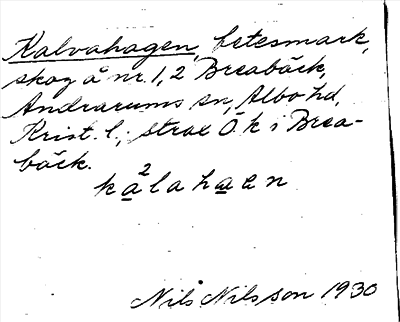 Kalvahagen, betesmark,
skog å nr. 1, 2 Breabäck,
Andrarums sn, Albo hd,
Krist. l.; strax Ö k i Brea-
bäck.
ka²lahaen
Nils Nilsson 1930